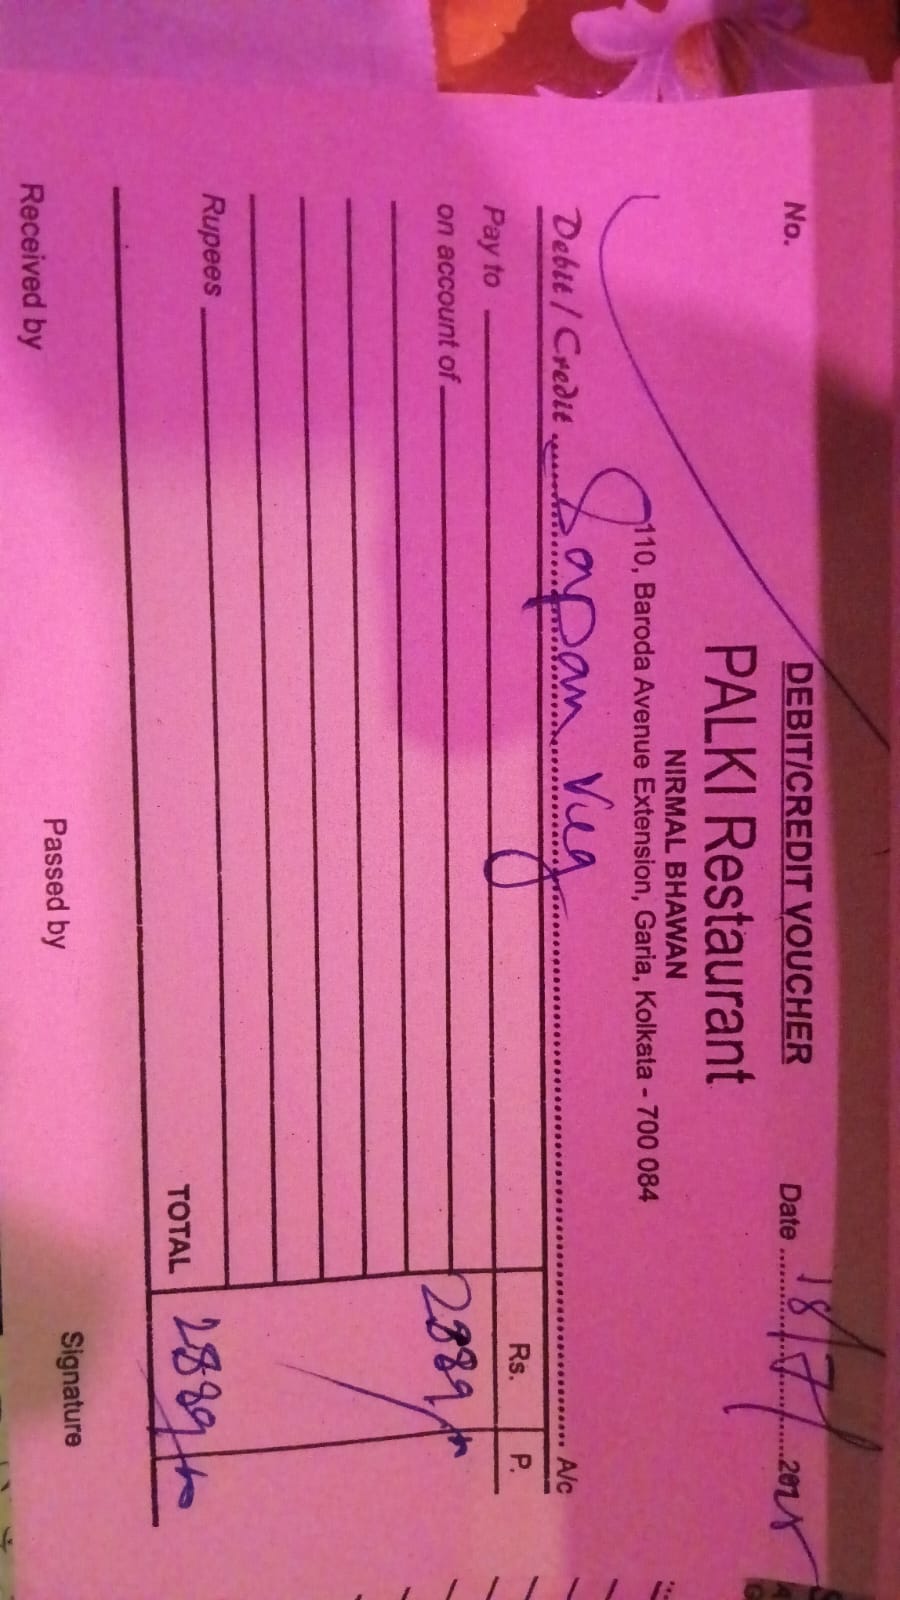 DEBIT/CREDIT VOUCHER
No. Date 18/7/2025
PALKI Restaurant
NIRMAL BHAWAN
110, Baroda Avenue Extension, Garia, Kolkata - 700 084
Debit / Credit Sapan Veg A/c
Pay to Rs. P.
on account of 2889/-
Rupees
TOTAL 2889/-
Received by Passed by Signature